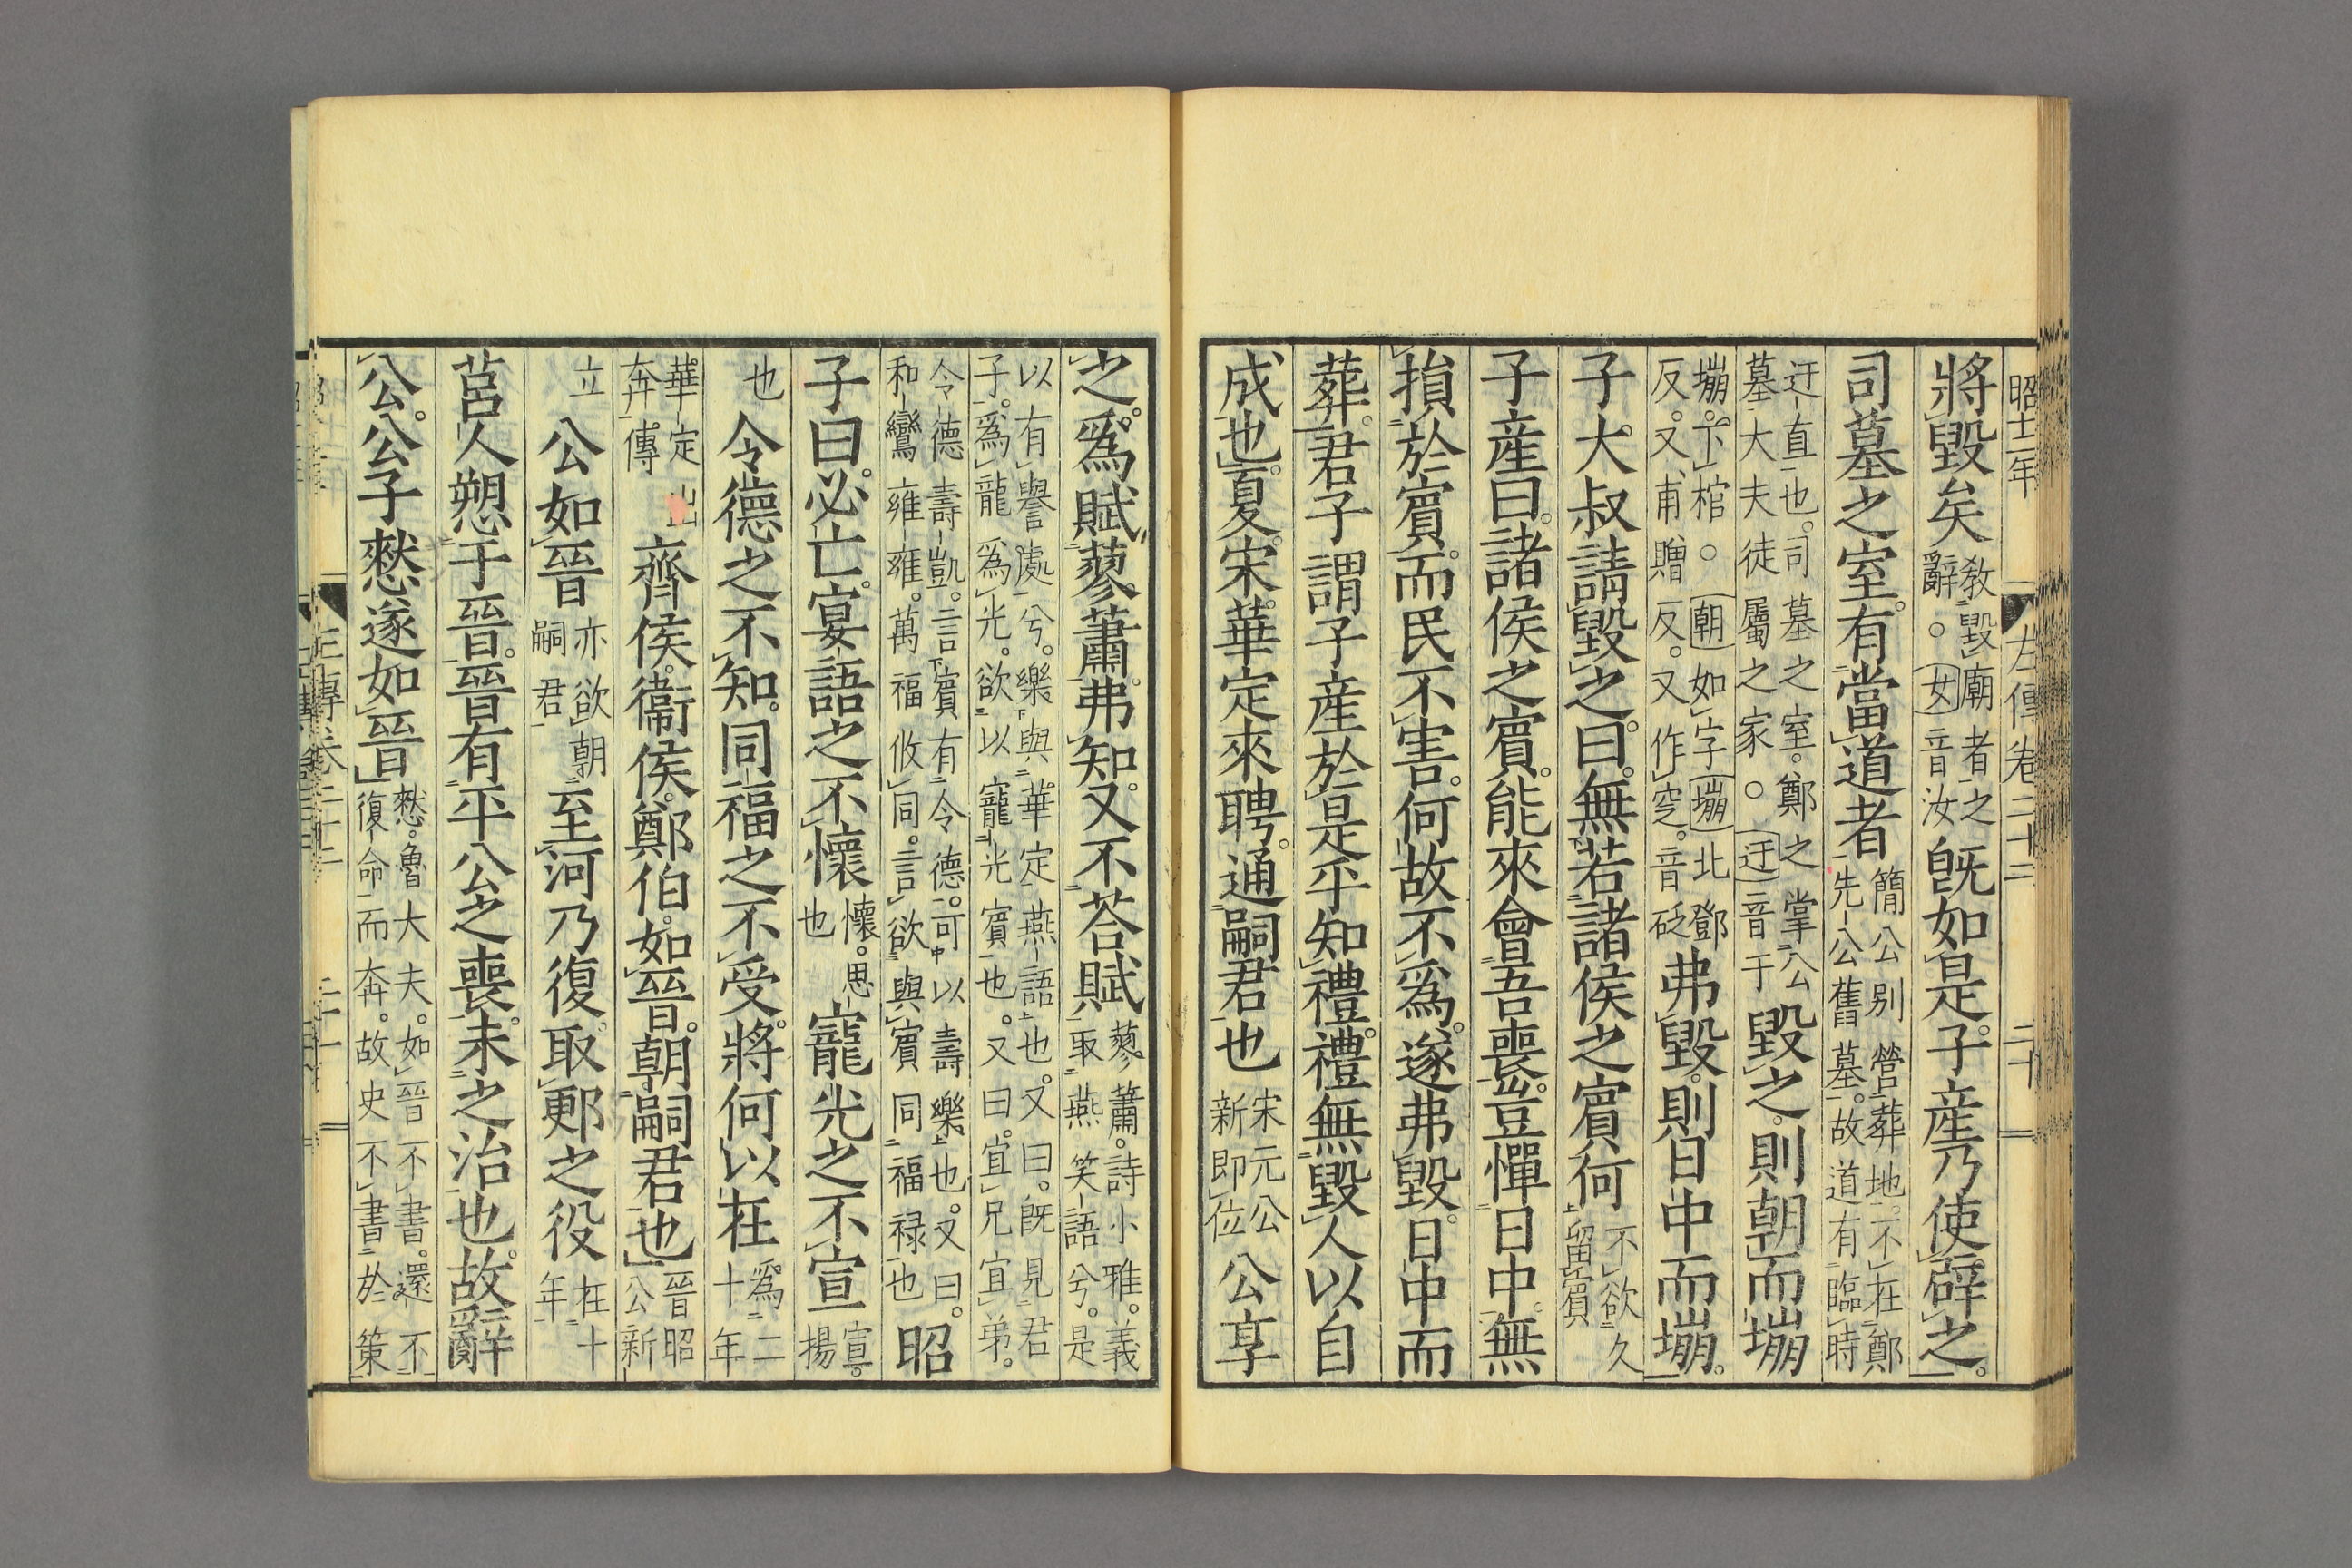 昭十二年 左傳卷二十二 二十
將毀矣教毀廟者之辭。○女音汝既如是。子産乃使辟之。
司墓之室。有當道者簡公別營葬地。不在鄭先公舊墓。故道有臨時
迂直也。司墓之室。鄭之掌公墓大夫徒屬之家。○迂音于毀之。則朝而塴
塴。下棺。○朝如字塴北鄧反。又甫贈反。又作窆。音砭弗毀。則日中而塴。
子大叔請毀之。曰。無若諸侯之賓何不欲久留賓
子産曰。諸侯之賓。能來會吾喪。豈憚日中。無
損於賓。而民不害。何故不爲。遂弗毀。日中而
葬。君子謂子産於是乎知禮。禮無毀人以自
成也。夏。宋華定來聘。通嗣君也宋元公新即位公享
之。爲賦蓼蕭。弗知。又不荅賦蓼蕭。詩小雅。義取燕笑語兮。是
以有譽處兮。樂與華定燕語也。又曰。既見君子。爲龍爲光。欲以寵光賓也。又曰。宜兄宜弟。
令德壽凱。言賓有令德。可以壽樂也。又曰。和鸞雍雍。萬福攸同。言欲與賓同福禄也昭
子曰。必亡。宴語之不懷懷。思也寵光之不宣宣。揚
也令德之不知。同福之不受。將何以在爲二十年
華定出奔傳齊侯。衞侯。鄭伯。如晉。朝嗣君也晉昭公新
立公如晉亦欲朝嗣君至河乃復。取郠之役在十年
莒人愬于晉。晉有平公之喪。未之治也。故辭
公。公子憖遂如晉憖。魯大夫。如晉不書。還不復命而奔。故史不書於策